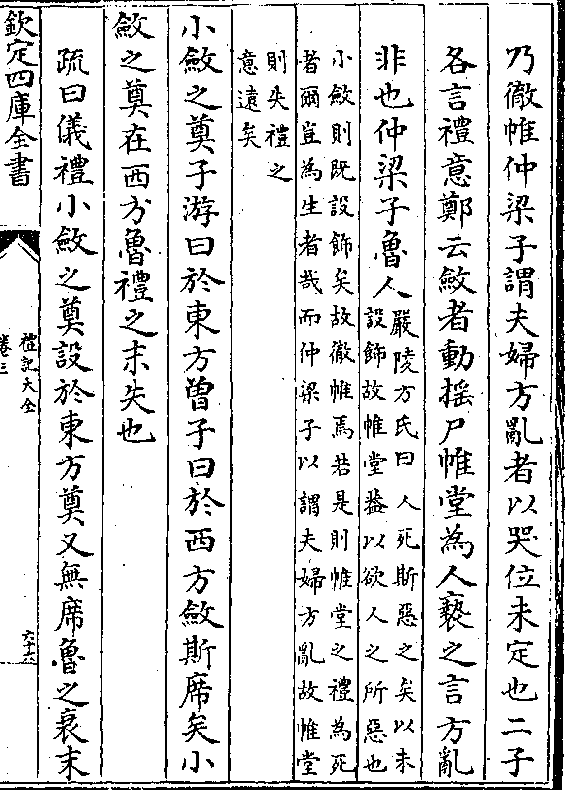 乃徹帷仲梁子謂夫婦方亂者以哭位未定也二子
各言禮意鄭云斂者動揺尸帷堂為人褻之言方亂
非也仲梁子魯人嚴陵方氏曰人死斯惡之矣以未
設飾故帷堂蓋以欲人之所惡也
小斂則既設飾矣故徹帷焉若是則帷堂之禮為死
者爾豈為生者哉而仲梁子以謂夫婦方亂故帷堂
則失禮之
意遠矣
小斂之奠子游曰於東方曽子曰於西方斂斯席矣小
斂之奠在西方魯禮之末失也
疏曰儀禮小斂之奠設於東方奠又無席魯之衰末
欽定四庫全書
禮記大全
卷三
六十六